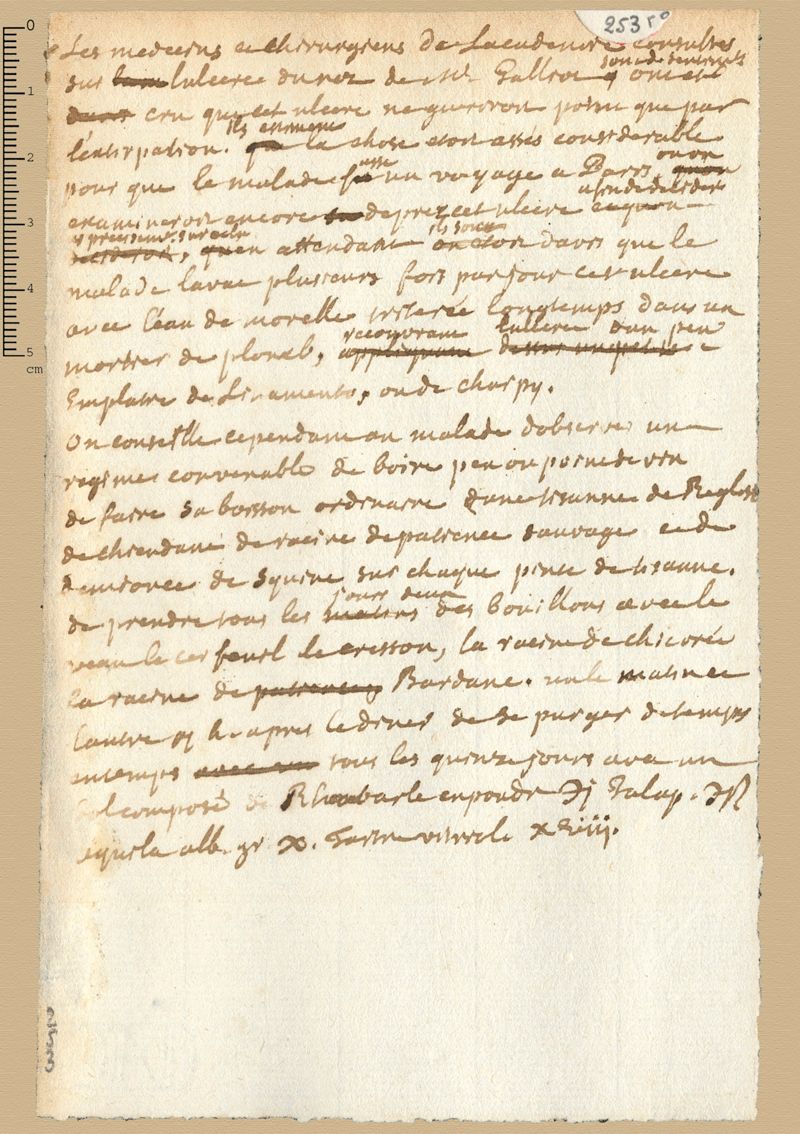 253 ro
Les medecins et chirurgiens de Lacademie consultés
sont de sentiment
sur lulcere du nez de Mr Galliot q ont
cru que cet ulcere ne gueriron point que par
ils estiment
lextirpation. que la chose etoit assés considerable
pour que le malade fit un voyage a Paris, ou on
afin de decider
examineroit encore de prez cet ulcere et quon
ils sont
decideroit, quen attendant on etoit davis que le
malade lavat plusieurs fois par jour cet ulcere
avec leau de morelle triturée longtemps dans un
recouvrant lulcere dun peu
mortier de plomb, appliquant dessus un petit
Emplatre de , ou de charpy.
On conseille cependant au malade dobserver un
regime convenable de boire peu ou point de vin
de faire sa boisson ordinaire dune tisanne de Reglisse
de chiendant de racine de patience sauvage et de
demi once de squine sur chaque pinte de tisanne.
jours deux
de prendre tous les matins des bouillons avec le
veau le cerfeuil le cresson, la racine de chicorée
la racine de patience Bardane. un le matin et
lautre h. apres le diner de se purger de temps
en temps avec un tous les quinze jours avec un
bol composé de Rhubarbe en poudre Jalap.
aquila alb. gr x. Tartre vitriolé
0
1
2
3
4
5
cm